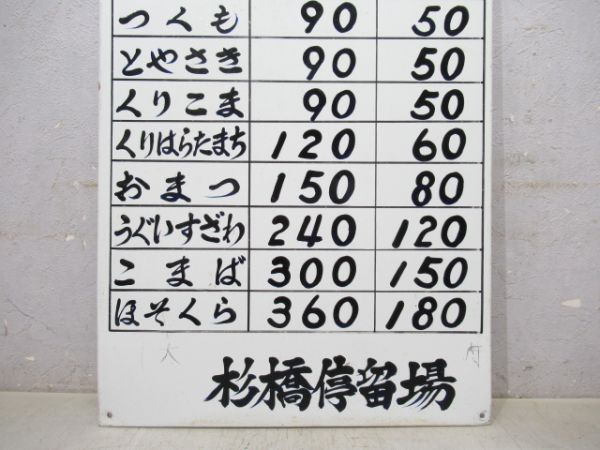 つくも 90 50
とやさき 90 50
くりこま 90 50
くりはらたまち 120 60
おまつ 150 80
うぐいすざわ 240 120
こまば 300 150
ほそくら 360 180
大
杉橋停留場